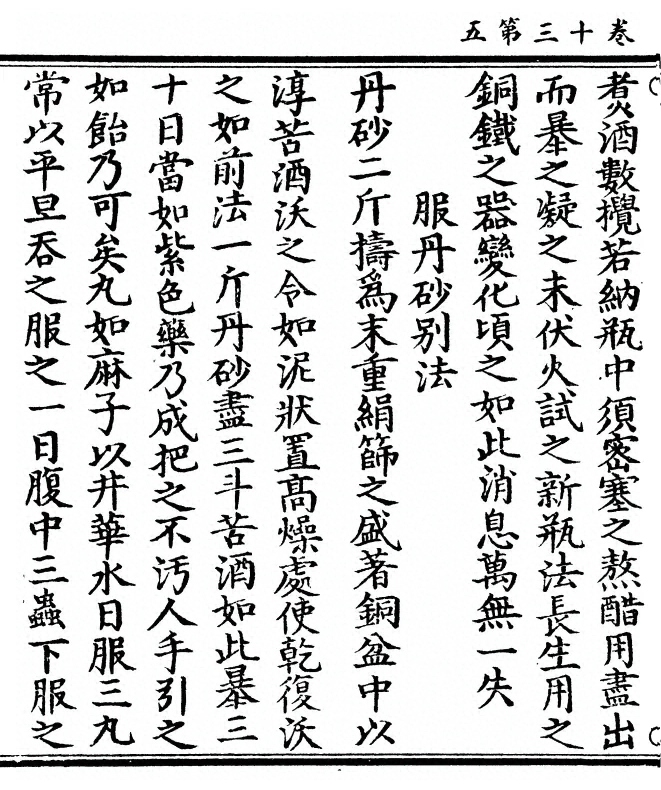 卷十三第五
煑酒數攪若納瓶中須密塞之熬醋用盡出
而暴之凝之未伏火試之新瓶法長生用之
銅鐵之器變化頃之如此消息萬無一失
服丹砂别法
丹砂二斤擣爲末重絹篩之盛著銅盆中以
淳苦酒沃之令如泥狀置高燥處使乾復沃
之如前法一斤丹砂盡三斗苦酒如此暴三
十日當如紫色藥乃成把之不汚人手引之
如飴乃可矣丸如麻子以井華水日服三丸
常以平旦吞之服之一日腹中三蟲下服之